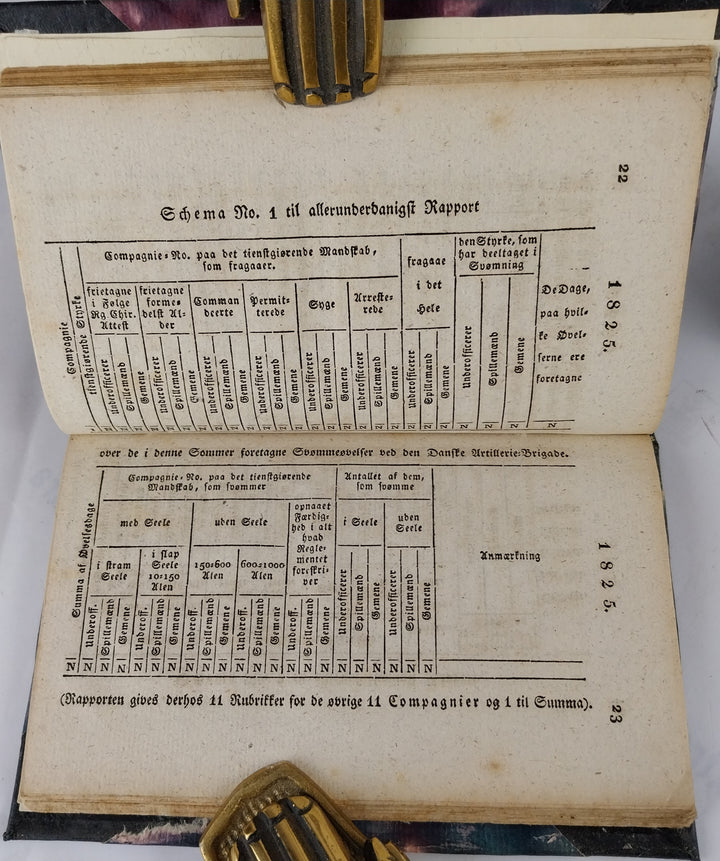 22
1825.
Schema No. 1 til allerunderdanigst Rapport
Compagnie
tienstgiørende Styrke
Compagnie-No. paa det tienstgiørende Mandskab,
som fragaaer.
frietagne
i Følge
Rg Chir.
Attest
frietagne
forme-
delst Al-
der
Comman
deerte
Permit-
terede
Syge
Arreste-
rede
fragaae
i det
Hele
den Styrke, som
har deeltaget i
Svømning
De Dage,
paa hvil-
ke Øvel-
serne ere
foretagne
Underofficerer
Spillemænd
Gemene
Underofficerer
Spillemænd
Gemene
Underofficerer
Spillemænd
Gemene
Underofficerer
Spillemænd
Gemene
Underofficerer
Spillemænd
Gemene
Underofficerer
Spillemænd
Gemene
Underofficerer
Spillemænd
Gemene
Underofficerer
Spillemænd
Gemene
N N N N N N N N N N N N N N N N N N N N N N N N N N N
over de i denne Sommer foretagne Svømmeøvelser ved den Danske Artillerie-Brigade.
Summa af Øvelsesdage
Compagnie-No. paa det tienstgiørende
Mandskab, som svømmer
Antallet af dem,
som svømme
Anmærkning
med Seele
uden Seele
opnaaet
Færdig-
hed i alt
hvad
Regle-
mentet
foreskri-
ver
i Seele
uden
Seele
i stram
Seele
i slap
Seele
10-150
Alen
150-600
Alen
600-1000
Alen
Underoff.
Spillemænd
Gemene
Underoff.
Spillemænd
Gemene
Underoff.
Spillemænd
Gemene
Underoff.
Spillemænd
Gemene
Underoff.
Spillemænd
Gemene
Underofficerer
Spillemænd
Gemene
Underofficerer
Spillemænd
Gemene
N N N N N N N N N N N N N N N N N N N N N N
(Rapporten gives derhos 11 Rubrikker for de øvrige 11 Compagnier og 1 til Summa).
1825.
23